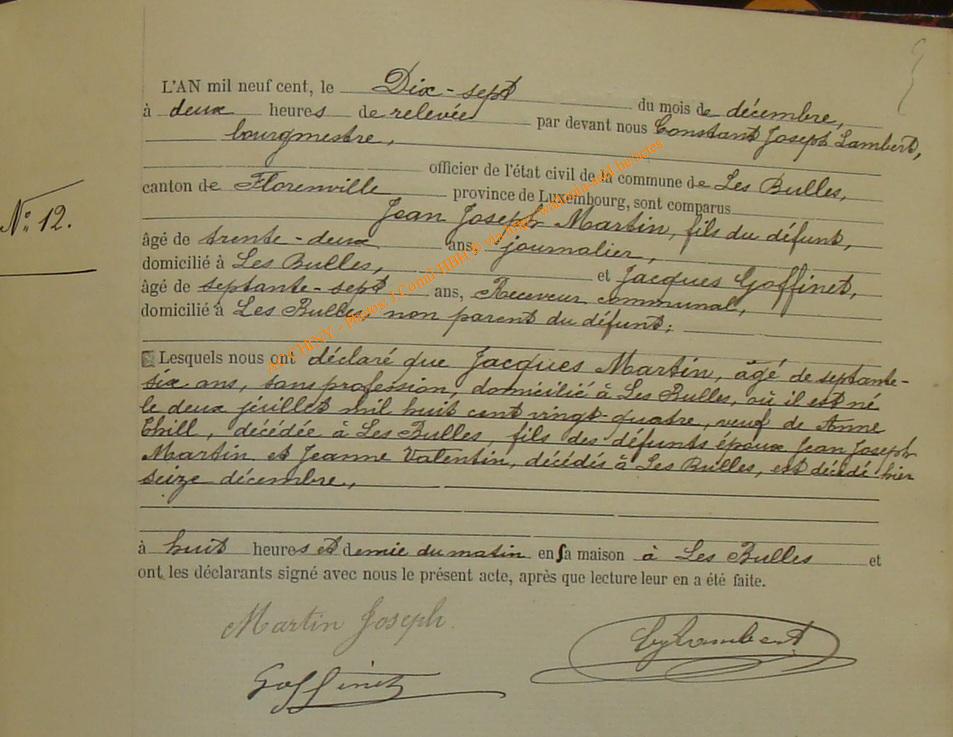 L'AN mil neuf cent, le Dix-sept du mois de décembre,
à deux heures de relevée par devant nous Constant Joseph Lambert,
bourgmestre,
officier de l'état civil de la commune de Les Bulles,
canton de Florenville province de Luxembourg, sont comparus
Jean Joseph Martin, fils du défunt,
N° 12.
âgé de trente-deux ans, journalier,
domicilié à Les Bulles, et Jacques Goffinet,
âgé de septante-sept ans, Receveur communal,
domicilié à Les Bulles, non parent du défunt;
Lesquels nous ont déclaré que Jacques Martin, âgé de septante-
six ans, sans profession, domicilié à Les Bulles, où il est né
le deux juillet mil huit cent vingt-quatre, veuf de Anne
Thill, décédée à Les Bulles, fils des défunts époux Jean Joseph
Martin et Jeanne Valentin, décédés à Les Bulles, est décédé hier
seize décembre,
à huit heures et demie du matin en sa maison à Les Bulles et
ont les déclarants signé avec nous le présent acte, après que lecture leur en a été faite.
Martin Joseph.
Lambert
Goffinet